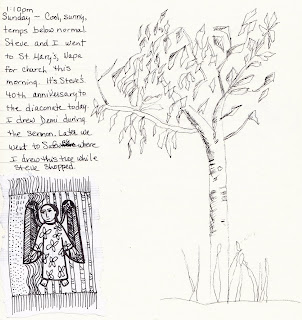 1:10pm
Sunday - Cool, sunny,
temps below normal.
Steve and I went
to St. Mary's, Napa
for church this
morning. It's Steve's
40th anniversary to
the diaconate today.
I drew Demi during
the sermon. Later we
went to where
I drew this tree while
Steve shopped.